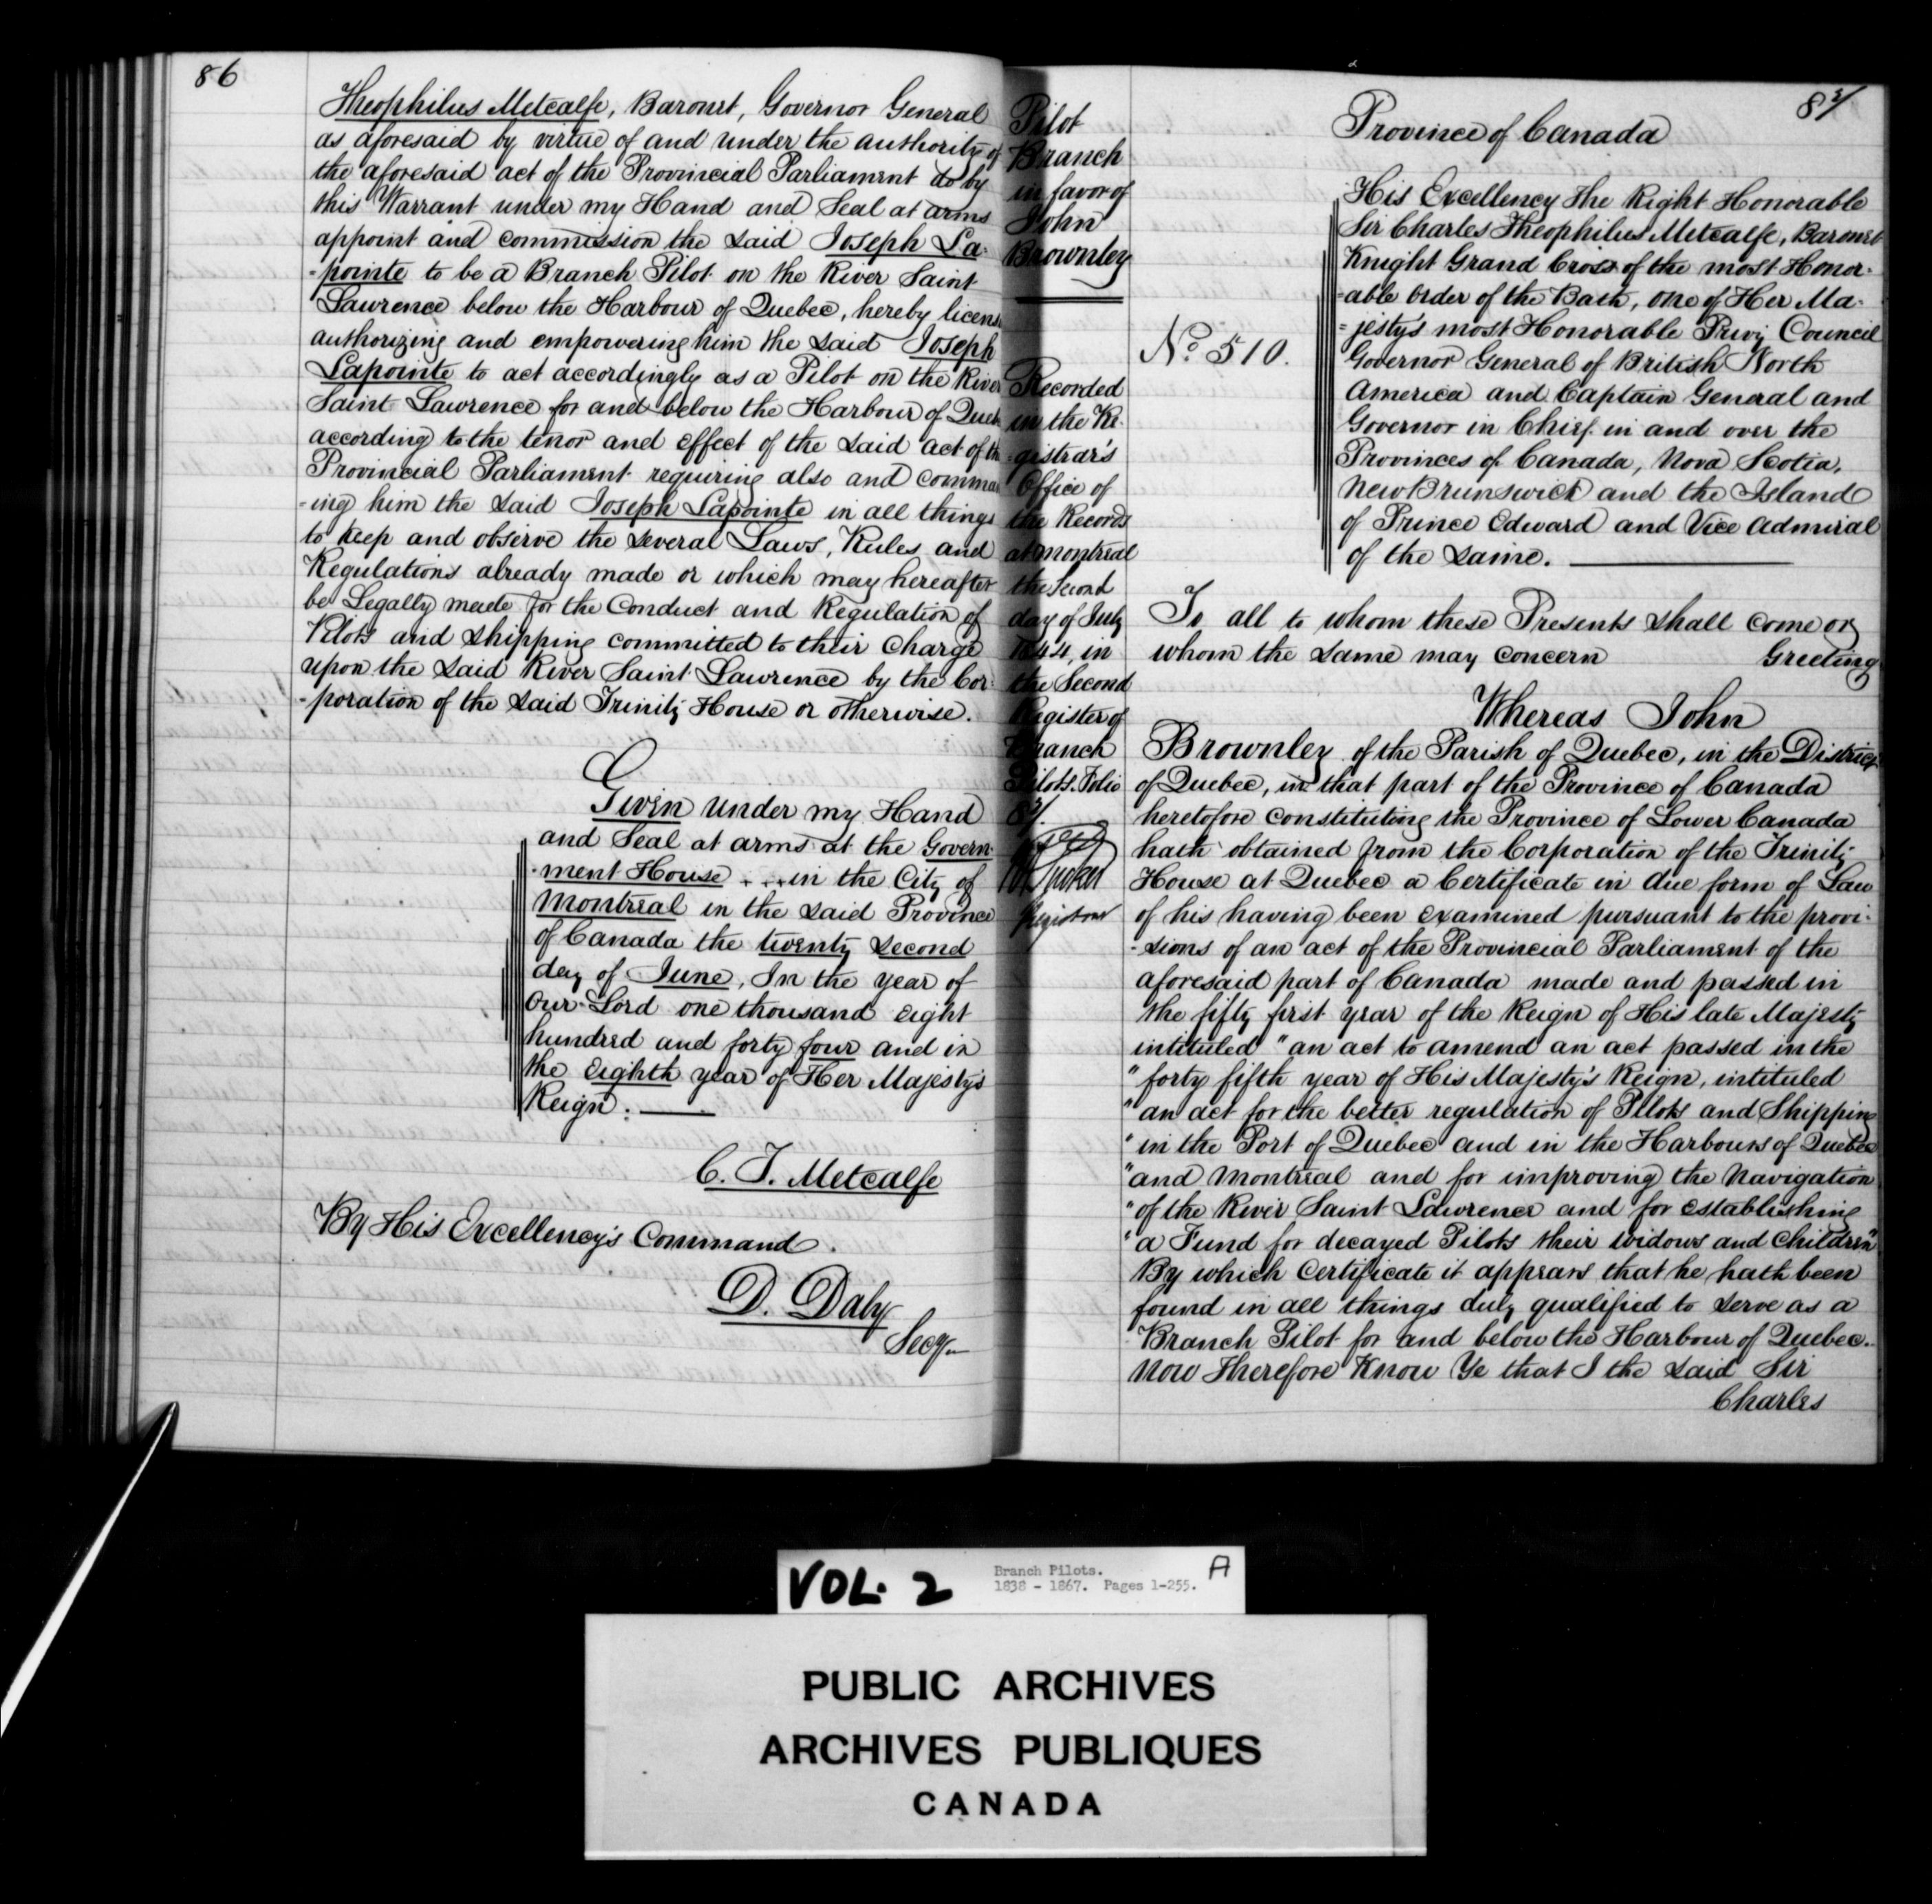 86
Theophilus Metcalfe, Baronet, Governor General
as aforesaid by virtue of and under the authority of
the aforesaid act of the Provincial Parliament do by
this Warrant under my Hand and Seal at arms
appoint and commission the said Joseph La-
-pointe to be a Branch Pilot on the River Saint
Lawrence below the Harbour of Quebec, hereby licens
authorizing and empowering him the said Joseph
Lapointe to act accordingly as a Pilot on the River
Saint Lawrence for and below the Harbour of Queb
according to the tenor and effect of the said act of the
Provincial Parliament requiring also and comman
-ing him the said Joseph Lapointe in all things
to keep and observe the several Laws, Rules and
Regulations already made or which may hereafter
be Legally made for the Conduct and Regulation of
Pilots and shipping committed to their Charge
upon the said River Saint Lawrence by the Cor-
-poration of the said Trinity House or otherwise.
Given under my Hand
and Seal at arms at the Govern-
-ment House . . . in the City of
Montreal in the said Province
of Canada the twenty second
day of June, In the year of
Our Lord one thousand eight
hundred and forty four and in
the Eighth year of Her Majesty's
Reign.
C. T. Metcalfe
By His Excellency's Command.
D. Daly
Secy
Pilot
Branch
in favor of
John
Brownley
Recorded
in the Re-
-gistrar's
Office of
the Records
at Montreal
the Second
day of July
1844, in
the Second
Register of
Branch
Pilots. Folio
87.
Registrar
87
Province of Canada
His Excellency The Right Honorable
Sir Charles Theophilus Metcalfe, Baronet
Knight Grand Cross of the most Honor-
-able Order of the Bath, one of Her Ma-
-jesty's most Honorable Privy Council
Governor General of British North
America and Captain General and
Governor in Chief in and over the
Provinces of Canada, Nova Scotia,
New Brunswick and the Island
of Prince Edward and Vice Admiral
of the same.
No 510.
To all to whom these Presents shall come or
whom the same may concern Greeting
Whereas John
Brownley of the Parish of Quebec, in the District
of Quebec, in that part of the Province of Canada
heretofore constituting the Province of Lower Canada
hath obtained from the Corporation of the Trinity
House at Quebec a Certificate in due form of Law
of his having been examined pursuant to the provi-
-sions of an act of the Provincial Parliament of the
aforesaid part of Canada made and passed in
the fifty first year of the Reign of His late Majesty
intituled "an act to amend an act passed in the
"forty fifth year of His Majesty's Reign, intituled
"an act for the better regulation of Pilots and Shipping
"in the Port of Quebec and in the Harbours of Quebec
"and Montreal and for improving the Navigation
"of the River Saint Lawrence and for establishing
"a Fund for decayed Pilots their widows and Children"
By which Certificate it appears that he hath been
found in all things duly qualified to serve as a
Branch Pilot for and below the Harbour of Quebec.
Now Therefore Know Ye that I the said Sir
Charles
VOL. 2
Branch Pilots.
1838 - 1867. Pages 1-255.
A
PUBLIC ARCHIVES
ARCHIVES PUBLIQUES
CANADA